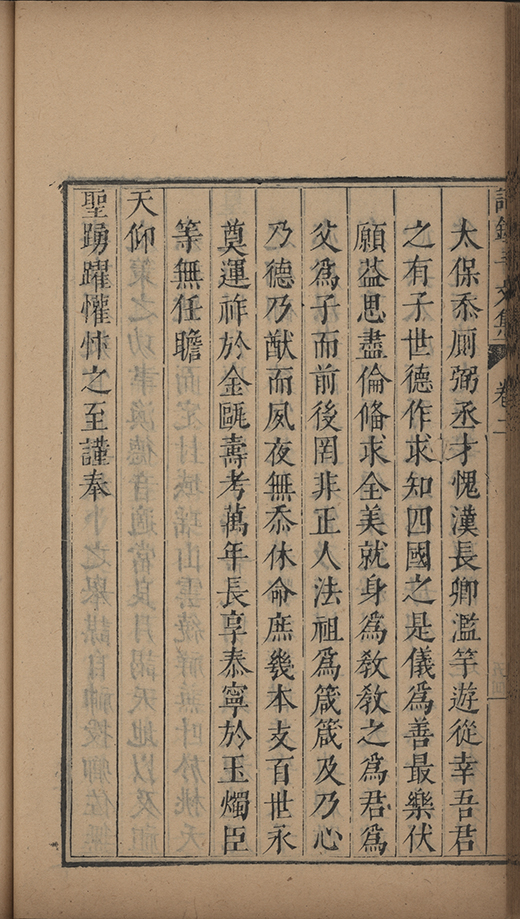 卷二
太保忝厠弼丞才愧漢長卿濫竽遊從幸吾君
之有子世德作求知四國之是儀爲善最樂伏
願益思盡倫脩求全美就身爲敎敎之爲君爲
父爲子而前後罔非正人法祖爲箴箴及乃心
乃德乃猷而夙夜無忝休命庶幾本支百世永
奠運祚於金甌壽考萬年長享泰寧於玉燭臣
等無任瞻
天仰
聖踴躍懽忭之至謹奉